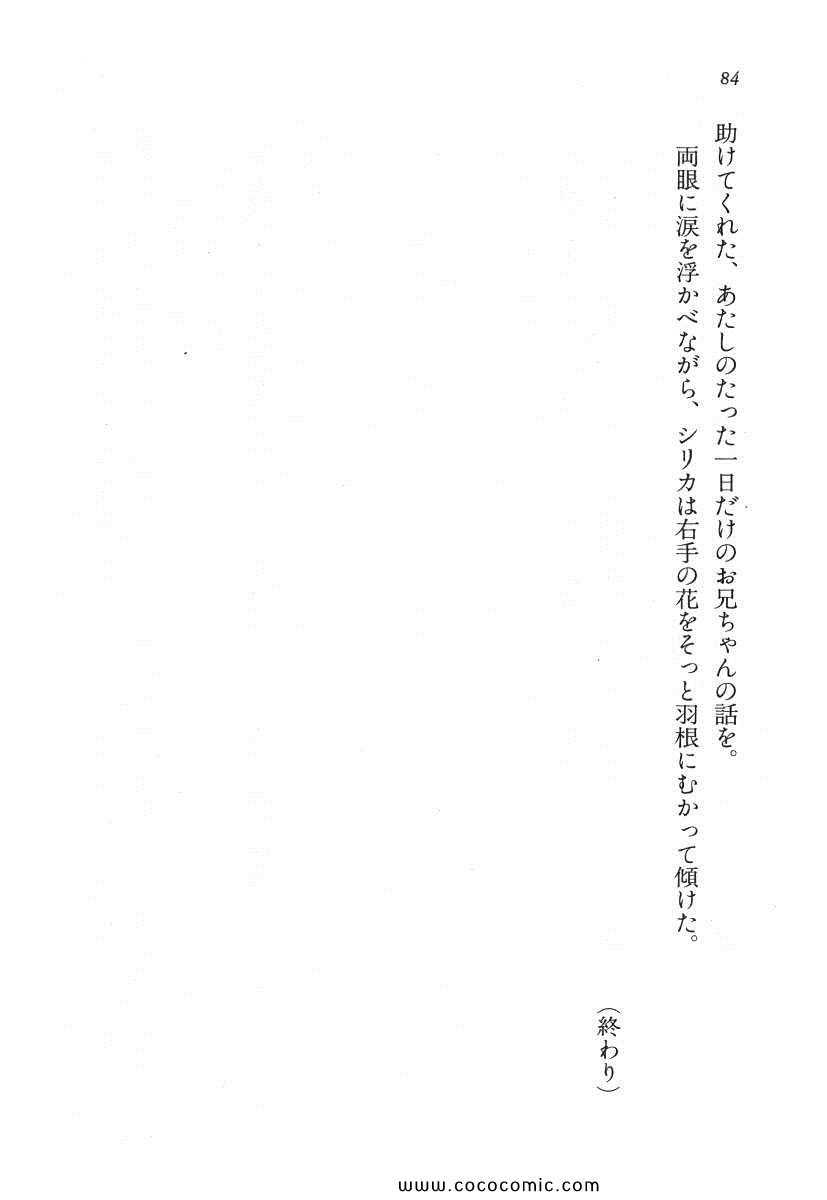 84
助けてくれた、あたしのたった一日だけのお兄ちゃんの話を。
両眼に涙を浮かべながら、シリカは右手の花をそっと羽根にむかって傾けた。
（終わり）
www.cococomic.com